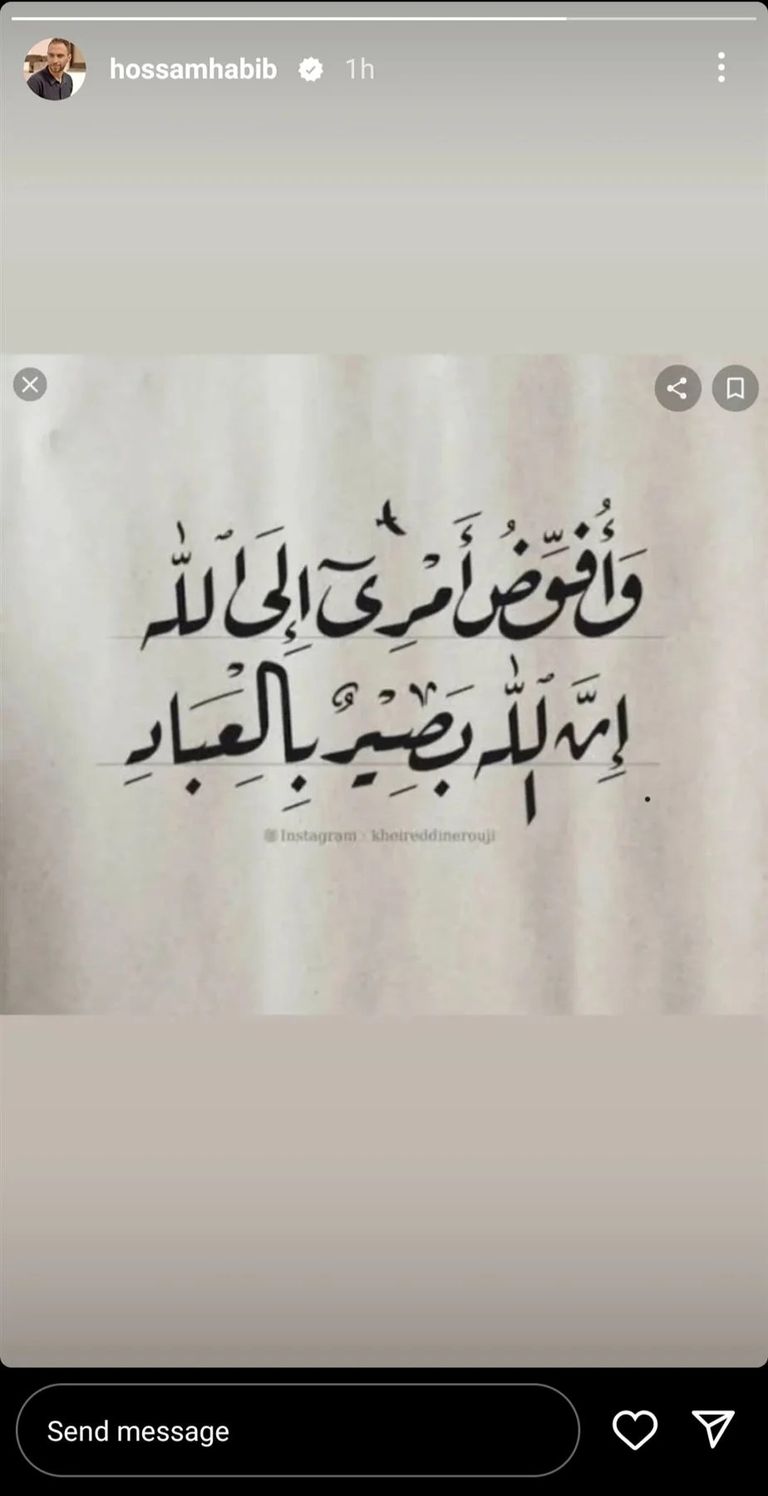 hossamhabib 1h
وَأُفَوِّضُ أَمْرِىٓ إِلَى ٱللَّهِ
إِنَّ ٱللَّهَ بَصِيرٌۢ بِالْعِبَادِ
Instagram : kheireddinerouji
Send message